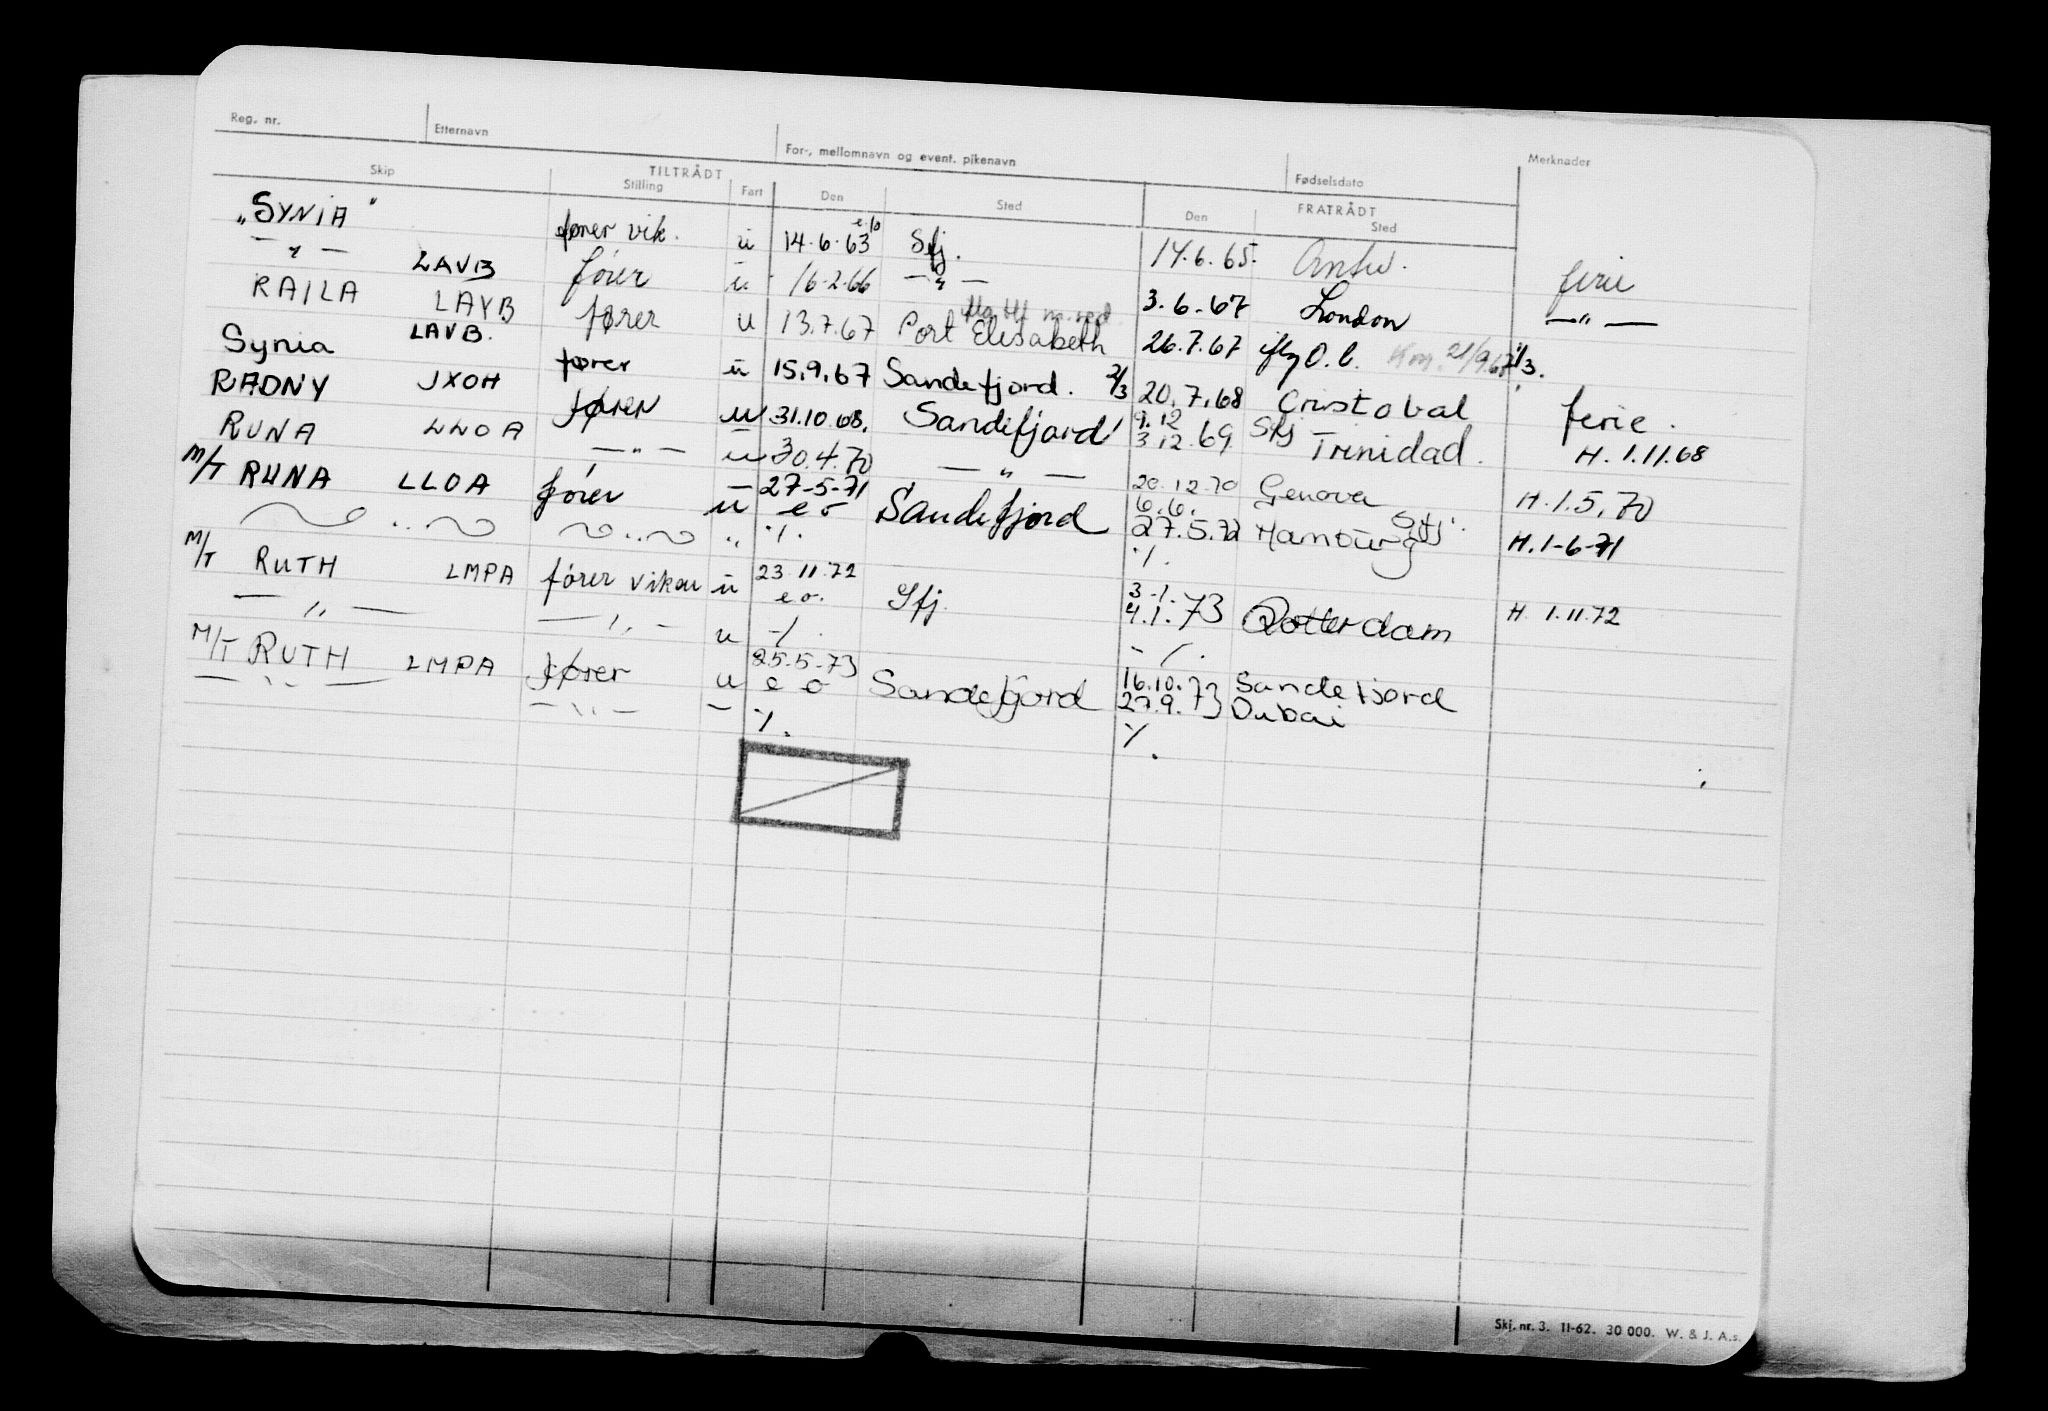 Reg. nr. Etternavn For-, mellomnavn og event. pikenavn Fødselsdato Merknader
Skip TILTRÅDT Stilling Fart Den Sted FRATRÅDT Den Sted
"SYNIA" fører vik. u 14.6.63 e.o Sfj. 14.6.65. Antw. ferie
— " — LAVB fører u 16.2.66 — " — 3.6.67 London — " —
RAILA LAYB fører u 13.7.67 Port Elisabeth 26.7.67 iflg O.l. 21/9.67 1/3.
Synia LAVB. fører u 15.9.67 Sandefjord. 2/3 20.7.68 Cristobal ferie.
RADNY JXOH fører u 31.10.68. Sandefjord 9.12 3.12.69 Sfj Trinidad. H. 1.11.68
RUNA LLOA — " — u 30.4.70 — " — 20.12.70 Genova H. 1.5.70
M/T RUNA LLOA fører u 27-5-71 e o Sandefjord 6.6. 27.5.72 Sfj. Hamburg H. 1-6-71
" " " ./. ./.
M/T RUTH LMPA fører vikar u 23.11.72 e o. Sfj. 3.1. 4.1.73 Rotterdam H. 1.11.72
— " — — " — u ./. ./.
M/T RUTH LMPA fører u 25-5-73 e o Sandefjord 16.10.73 Sandefjord 27.9.73 Dubai
— " — — " — — ./. ./.
Skj. nr. 3. 11-62. 30 000. W. & J. A.s.